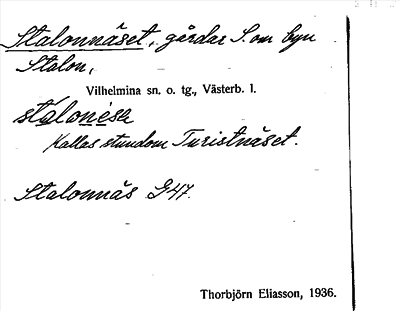 Stalonnäset, gårdar S. om byn
Stalon,
Vilhelmina sn. o. tg., Västerb. l.
stálonèsa
Kallas stundom Turistnäset.
Stalonnäs G47.
Thorbjörn Eliasson, 1936.